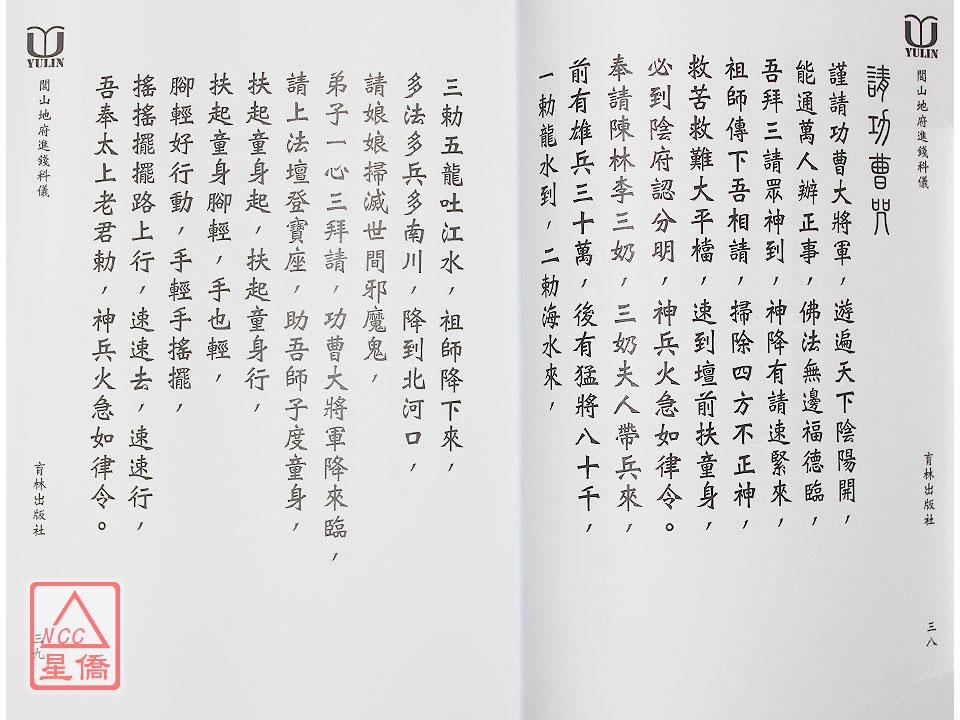 YULIN
閭山地府進錢科儀
育林出版社
三八
請功曹咒
謹請功曹大將軍，遊遍天下陰陽開，
能通萬人辦正事，佛法無邊福德臨，
吾拜三請眾神到，神降有請速緊來，
祖師傳下吾相請，掃除四方不正神，
救苦救難大平檔，速到壇前扶童身，
必到陰府認分明，神兵火急如律令。
奉請陳林李三奶，三奶夫人帶兵來，
前有雄兵三十萬，後有猛將八十千，
一勅龍水到，二勅海水來，
三勅五龍吐江水，祖師降下來，
多法多兵多南川，降到北河口，
請娘娘掃滅世間邪魔鬼，
弟子一心三拜請，功曹大將軍降來臨，
請上法壇登寶座，助吾師子度童身，
扶起童身起，扶起童身行，
扶起童身腳輕，手也輕，
腳輕好行動，手輕手搖擺，
搖搖擺擺路上行，速速去，速速行，
吾奉太上老君勅，神兵火急如律令。
YULIN
閭山地府進錢科儀
育林出版社
三九
NCC
星僑